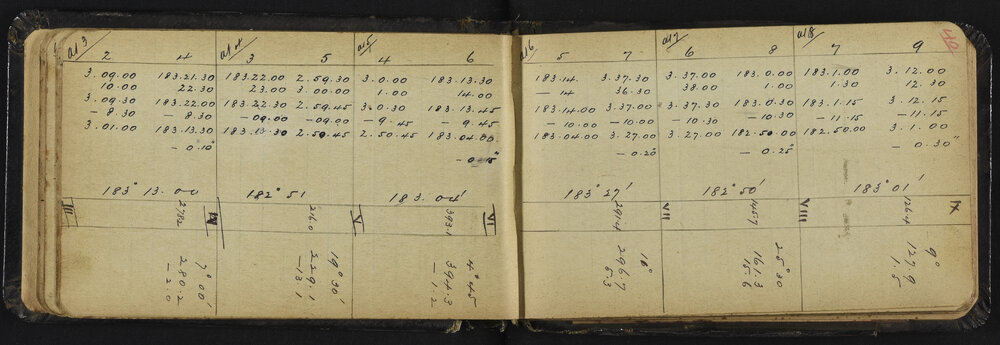 a13
2 4
3.09.00 183.21.30
10.00 22.30
3.09.30 183.22.00
— 8.30 — 8.30
3.01.00 183.13.30
— 0.10"
183° 13.00
3 5
183.22.00 2.59.30
23.00 3.00.00
183.22.30 2.59.45
— 09.00 — 09.00
183.13.30 2.50.45
182° 51
a15
4 6
3.0.00 183.13.30
1.00 14.00
3.0.30 183.13.45
— 9.45 — 9.45
2.50.45 183.04.00
— 0.15"
183.04'
a16
5 7
183.14. 3.37.30
— 14 36.30
183.14.00 3.37.00
— 10.00 — 10.00
183.04.00 3.27.00
— 0.20"
183° 27'
a17
6 8
3.37.00 183.0.00
38.00 1.00
3.37.30 183.0.30
— 10.30 — 10.30
3.27.00 182.50.00
— 0.25"
182° 50'
a18
7 9
183.1.00 3.12.00
1.30 12.30
183.1.15 3.12.15
— 11.15 — 11.15
182.50.00 3.1.00
— 0.30"
183° 01'
40
III
2782
7° 00'
280.2
— 2.0
IV
2160
19° 30'
229.1
— 13.1
V
393.1
4° 45
394.3
— 1.2
VI
291.4
296.7
5.3
VII
145.7
25° 30
161.3
15.6
VIII
126.4
9°
127.9
1.5
IX